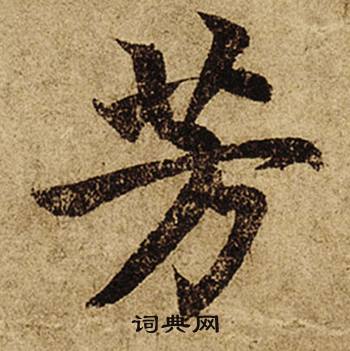 芳
词典网